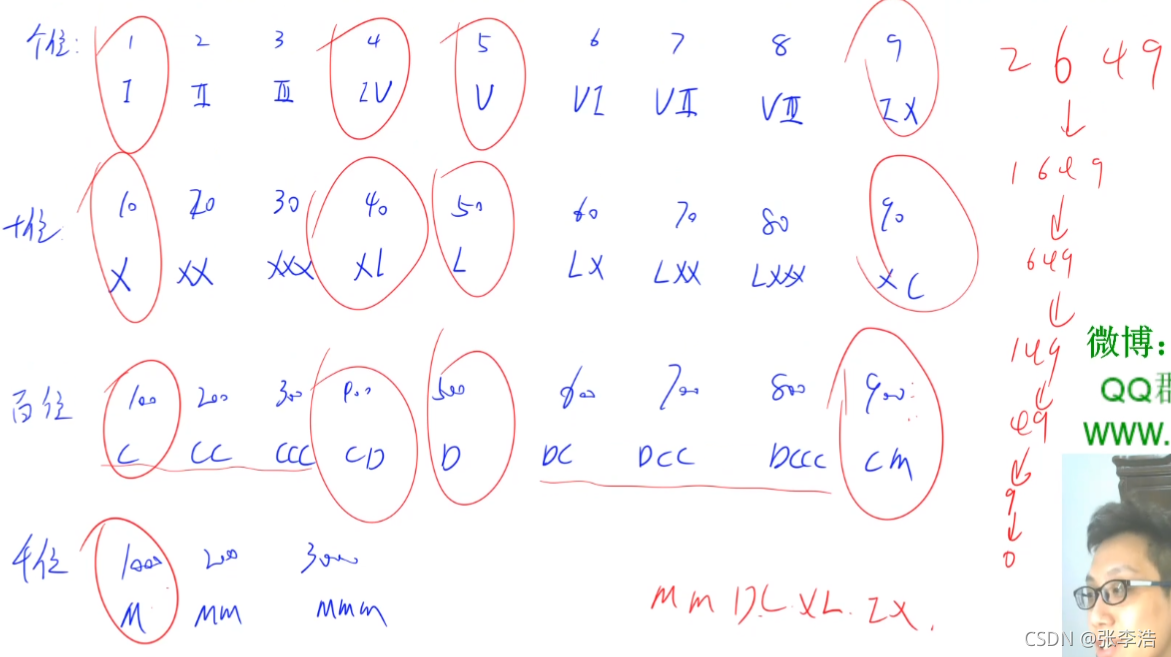 个位: 1 2 3 4 5 6 7 8 9
I II III IV V VI VII VIII IX
十位: 10 20 30 40 50 60 70 80 90
X XX XXX XL L LX LXX LXXX XC
百位 100 200 300 400 500 600 700 800 900
C CC CCC CD D DC DCC DCCC CM
千位 1000 2000 3000
M MM MMM
MM DC XL IX.
2649
1649
649
149
49
9
0
微博:
QQ群
WWW.
CSDN @张李浩